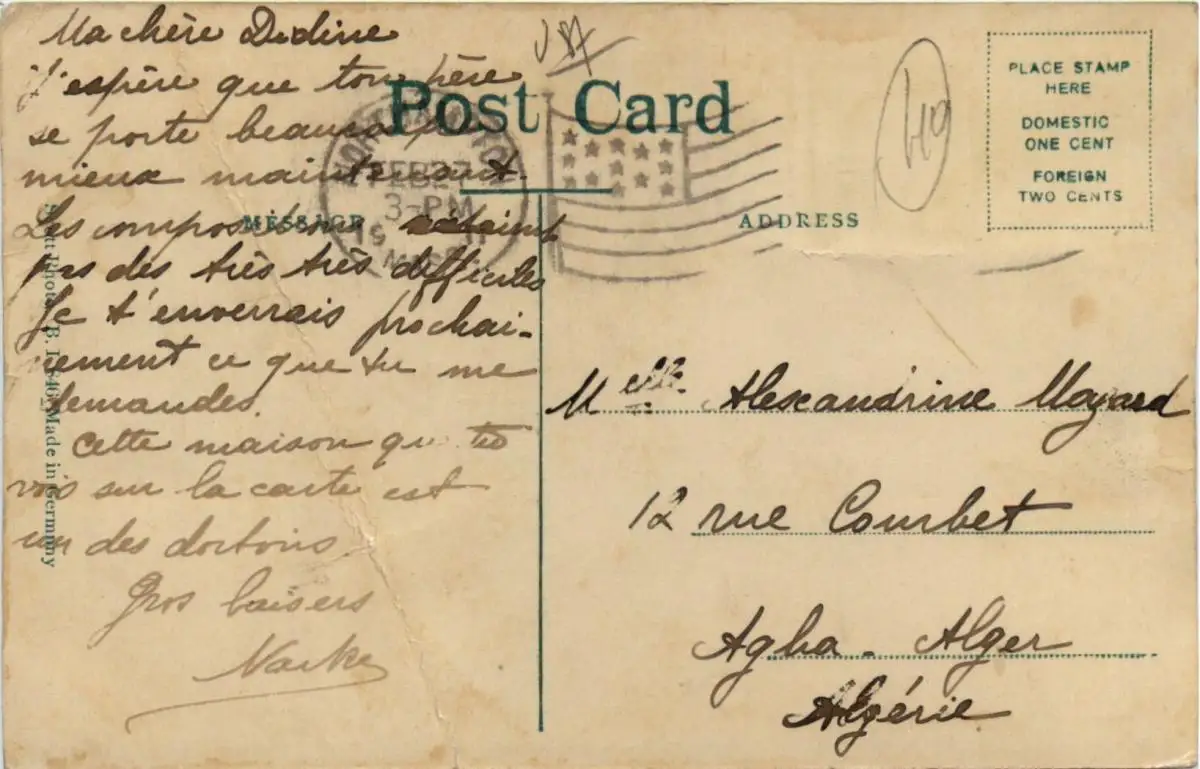 Ma chère Didine
J'espère que ton père
se porte beaucoup
mieux maintenant.
Les compositions n'étaient
pas des très très difficiles
Je t'enverrais prochai-
nement ce que tu me
demandes.
Cette maison que tu
vois sur la carte est
un des dortoirs.
Gros baisers
Post Card
NORTHAMPTON
FEB 27
3-PM
MASS.
MESSAGE
ADDRESS
PLACE STAMP
HERE
DOMESTIC
ONE CENT
FOREIGN
TWO CENTS
Melle. Alexandrine Mayard
12 rue Courbet
Agha - Alger
Algérie
Made in Germany